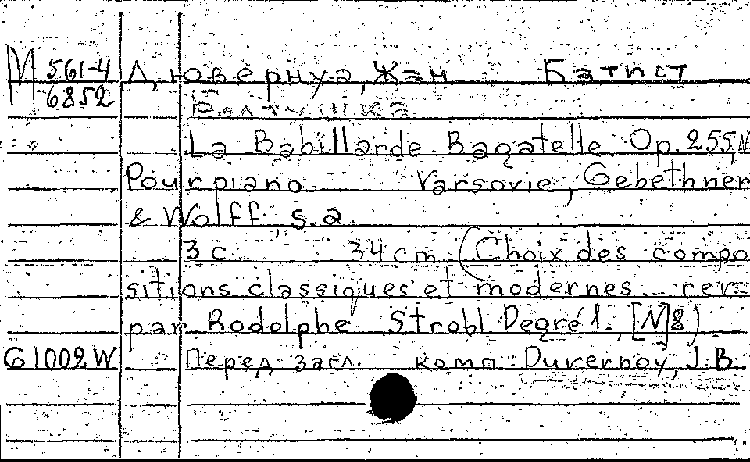 М 561-4 Дювернуа, Жан Батист
6852 Болтушка
La Babillarde Bagatelle Op. 255, N
Pour piano Varsovie, Gebethner
& Wolff s.a.
3 c 34 cm (Choix des compo
sitions classiques et modernes rev.
par Rodolphe Strobl Degré 1. [N 8)
G 1002 W Перед загл. комп. Duvernoy, J.B.